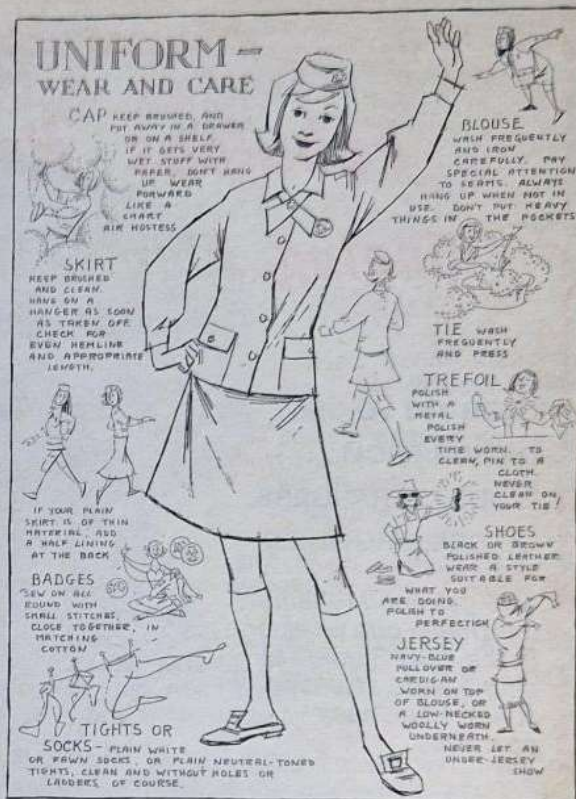 UNIFORM -
WEAR AND CARE
CAP KEEP BRUSHED, AND
PUT AWAY IN A DRAWER
OR ON A SHELF.
IF IT GETS VERY
WET STUFF WITH
PAPER. DON'T HANG
UP WEAR
FORWARD
LIKE A
SMART
AIR HOSTESS
SKIRT
KEEP BRUSHED
AND CLEAN.
HANG ON A
HANGER AS SOON
AS TAKEN OFF.
CHECK FOR
EVEN HEMLINE
AND APPROPRIATE
LENGTH.
IF YOUR PLAIN
SKIRT IS OF THIN
MATERIAL, ADD
A HALF LINING
AT THE BACK
BADGES
SEW ON ALL
ROUND WITH
SMALL STITCHES,
CLOSE TOGETHER, IN
MATCHING
COTTON
TIGHTS OR
SOCKS - PLAIN WHITE
OR FAWN SOCKS, OR PLAIN NEUTRAL-TONED
TIGHTS, CLEAN AND WITHOUT HOLES OR
LADDERS, OF COURSE.
BLOUSE
WASH FREQUENTLY
AND IRON
CAREFULLY. PAY
SPECIAL ATTENTION
TO SEAMS. ALWAYS
HANG UP WHEN NOT IN
USE. DON'T PUT HEAVY
THINGS IN THE POCKETS
TIE WASH
FREQUENTLY
AND PRESS
TREFOIL
POLISH
WITH A
METAL
POLISH
EVERY
TIME WORN. TO
CLEAN, PIN TO A
CLOTH.
NEVER
CLEAN ON
YOUR TIE!
SHOES
BLACK OR BROWN
POLISHED LEATHER.
WEAR A STYLE
SUITABLE FOR
WHAT YOU
ARE DOING.
POLISH TO
PERFECTION
JERSEY
NAVY-BLUE
PULLOVER OR
CARDIGAN
WORN ON TOP
OF BLOUSE, OR
A LOW-NECKED
WOOLLY WORN
UNDERNEATH.
NEVER LET AN
UNDER-JERSEY
SHOW